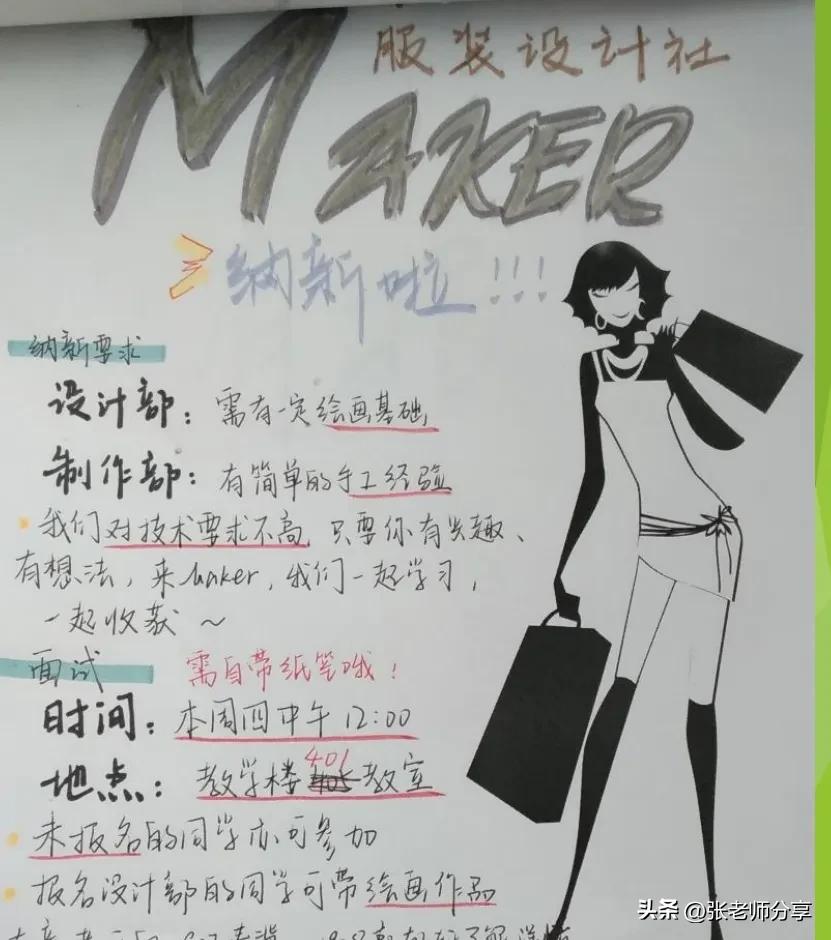 服装设计社
MAKER
纳新啦!!!
纳新要求
设计部：需有一定绘画基础
制作部：有简单的手工经验
我们对技术要求不高，只要你有兴趣、
有想法，来Maker，我们一起学习，
一起收获～
面试 需自带纸笔哦！
时间：本周四中午12:00
地点：教学楼401教室
未报名的同学亦可参加
报名设计部的同学可带绘画作品
头条 @张老师分享